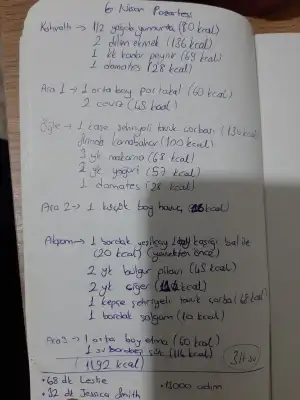 6 Nisan Pazartesi
Kahvaltı → 1/2 yağda yumurta (80 kcal)
2 dilim ekmek (136 kcal)
1 kibrit peynir (69 kcal)
1 domates (28 kcal)
Ara 1 → 1 orta boy portakal (60 kcal)
2 ceviz (45 kcal)
Öğle → 1 kase şehriyeli tavuk çorbası (136 kcal)
karnabahar (100 kcal)
3 yk makarna (68 kcal)
2 yk yoğurt (57 kcal)
1 domates (28 kcal)
Ara 2 → 1 küçük boy havuç kcal)
Akşam → 1 bardak yeşilçay 1 kaşığı bal ile
(20 kcal) (yemekten önce)
2 yk bulgur pilavı (45 kcal)
2 yk ciğer kcal)
1 kepçe şehriyeli tavuk çorba (68 kcal)
1 bardak şalgam (10 kcal)
Ara 3 → 1 orta boy elma (60 kcal)
1 su bardağı süt (114 kcal)
(1192 kcal)
3 lt su
• 68 dk Leslie
• 13000 adım
• 32 dk Jessica Smith